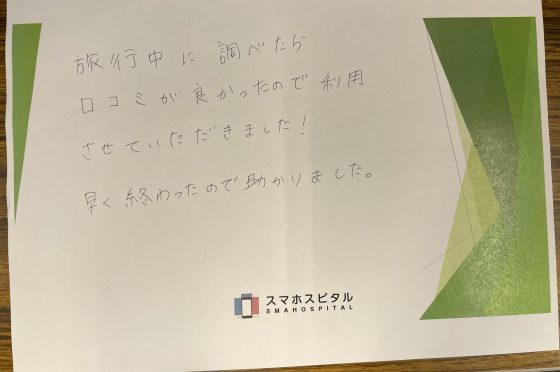 旅行中に調べたら
口コミが良かったので利用
させていただきました!
早く終わったので助かりました。
スマホスピタル
SMAHOSPITAL